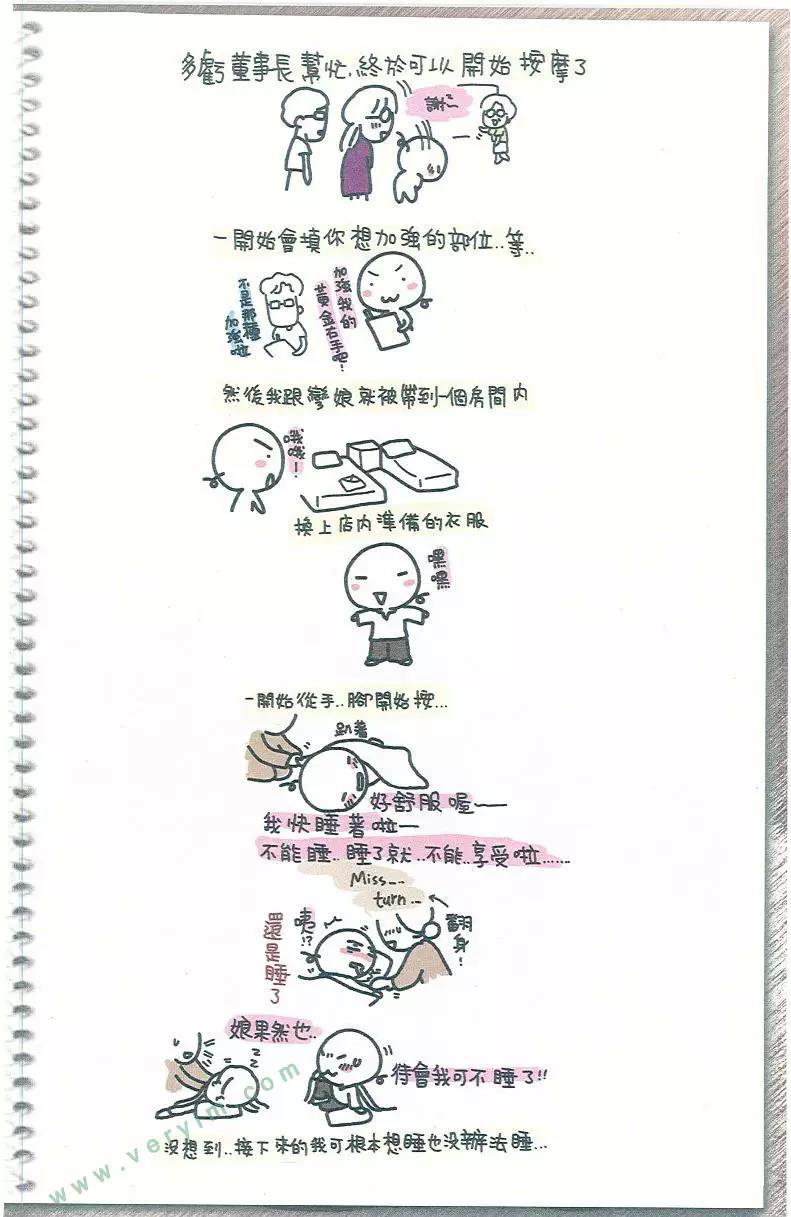 多虧董事長幫忙.終於可以開始按摩了
謝~
一開始會填你想加強的部位..等..
不是那種
加強啦
加強我的
黃金右手吧!
然後我跟彎娘就被帶到一個房間內
哦哦~!
換上店內準備的衣服
嘿嘿
一開始從手..腳開始按...
趴著
好舒服喔~~
我快睡著啦~
不能睡..睡了就..不能..享受啦......
Miss...
turn...
翻身!
咦!?
還是睡了
娘果然也..
zzz
待會我可不睡了!!
没想到..接下來的我可根本想睡也没辦法睡...
www.veryim.com